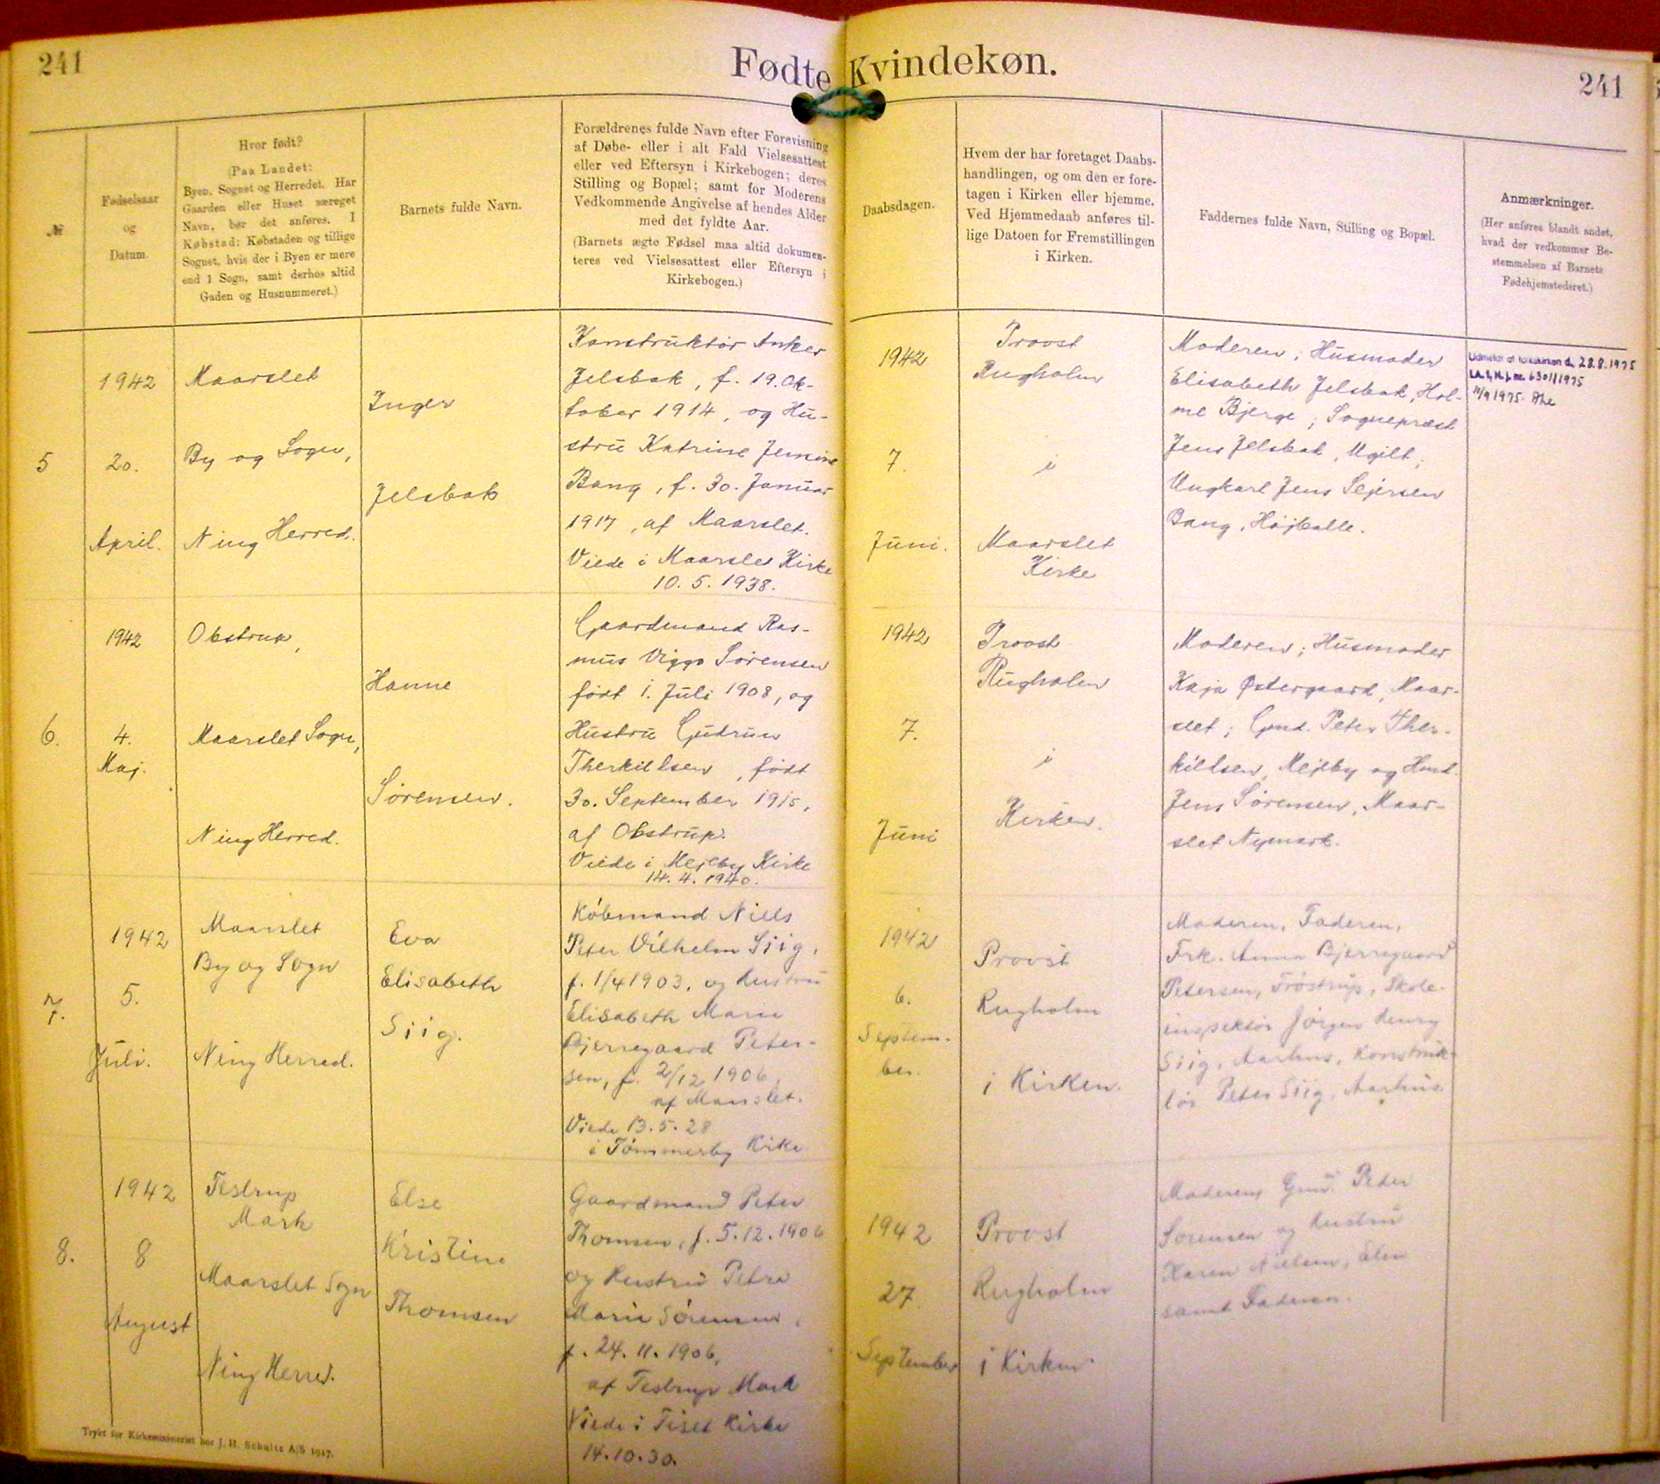 241
Fødte Kvindekøn.
241
№
Fødselsaar
og
Datum.
Hvor født?
(Paa Landet:
Byen, Sognet og Herredet. Har
Gaarden eller Huset særeget
Navn, bør det anføres. I
Købstad: Købstaden og tillige
Sognet, hvis der i Byen er mere
end 1 Sogn, samt derhos altid
Gaden og Husnummeret.)
Barnets fulde Navn.
Forældrenes fulde Navn efter Forevisning
af Døbe- eller i alt Fald Vielsesattest
eller ved Eftersyn i Kirkebogen; deres
Stilling og Bopæl; samt for Moderens
Vedkommende Angivelse af hendes Alder
med det fyldte Aar.
(Barnets ægte Fødsel maa altid dokumen-
teres ved Vielsesattest eller Eftersyn i
Kirkebogen.)
Daabsdagen.
Hvem der har foretaget Daabs-
handlingen, og om den er fore-
tagen i Kirken eller hjemme.
Ved Hjemmedaab anføres til-
lige Datoen for Fremstillingen
i Kirken.
Faddernes fulde Navn, Stilling og Bopæl.
Anmærkninger.
(Her anføres blandt andet,
hvad der vedkommer Be-
stemmelsen af Barnets
Fødehjemstedsret.)
5
1942
20.
April.
Maarslet
By og Sogn,
Ning Herred.
Inger
Jelsbak
Konstruktør Anker
Jelsbak, f. 19. Ok-
tober 1914, og Hu-
stru Katrine Jensine
Bang, f. 30. Januar
1917, af Maarslet.
Viede i Maarslet Kirke
10. 5. 1938.
1942
7.
Juni.
Provst
Rugholm
i
Maarslet
Kirke
Moderen; Husmoder
Elisabeth Jelsbak, Hol-
me Bjerge; Sognepræst
Jens Jelsbak, Ugilt;
Ungkarl Jens Sejersen
Bang, Højballe.
Udmeldt af folkekirken d. 28.8.1975
6301/1975
11/9 1975
6.
1942
4.
Maj.
Obstrup,
Maarslet Sogn,
Ning Herred.
Hanne
Sørensen.
Gaardmand Ras-
mus Viggo Sørensen
født 1. Juli 1908, og
Hustru Gudrun
Therkildsen, født
30. September 1915,
af Obstrup.
Viede i Mejlby Kirke
14. 4. 1940.
1942
7.
Juni
Provst
Rugholm
i
Kirken.
Moderen; Husmoder
Kaja Østergaard, Maar-
slet; Gmd. Peter Ther-
kildsen, Mejlby og Hmd.
Jens Sørensen, Maar-
slet Nymark.
7.
1942
5.
Juli.
Maarslet
By og Sogn
Ning Herred.
Eva
Elisabeth
Siig.
Købmand Niels
Peter Vilhelm Siig,
f. 1/4 1903, og Hustru
Elisabeth Marie
Bjerregaard Peter-
sen, f. 2/12 1906,
af Maarslet.
Viede 13. 5. 28
i Tømmerby Kirke
1942
6.
Septem-
ber.
Provst
Rugholm
i Kirken.
Moderen, Faderen,
Frk. Anna Bjerregaard
Petersen, Frøstrup, Skole-
inspektør Jørgen Henry
Siig, Aarhus, Konstruk-
tør Peter Siig, Aarhus.
8.
1942
8
August
Testrup
Mark
Maarslet Sogn
Ning Herred.
Else
Kristine
Thomsen
Gaardmand Peter
Thomsen, f. 5. 12. 1906
og Hustru Petra
Marie Sørensen,
f. 24. 11. 1906,
af Testrup Mark
Viede i Tiset Kirke
14. 10. 30.
1942
27.
September
Provst
Rugholm
i Kirken.
Moderen, Gmd. Peter
Sørensen og Hustru
Karen Nielsen,
samt Faderen.
Trykt for Kirkeministeriet hos J. H. Schultz A/S 1917.